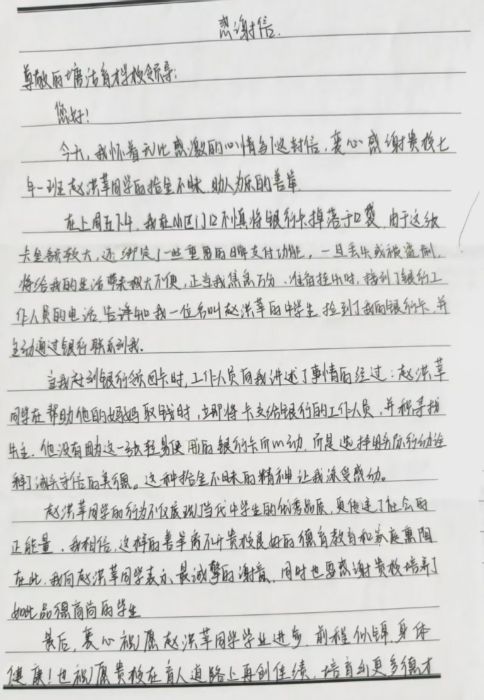 感谢信.
尊敬的塘沽育才学校领导:
您好!
今天,我怀着无比感激的心情写了这封信,衷心感谢贵校七
年一班赵洪莘同学的拾金不昧、助人为乐的善举.
在上周五下午,我在小区门口不慎将银行卡掉落于口袋,由于这张
卡金额较大,还绑定了一些重要的日常支付功能,一旦丢失或被盗刷,
将给我的生活带来极大不便,正当我焦急万分,准备挂失时,接到了银行工
作人员的电话,告诉我一位名叫赵洪莘的中学生,捡到了我的银行卡,并
主动通过银行联系到我.
当我赶到银行领回卡时,工作人员向我讲述了事情的经过:赵洪莘
同学在帮助他的妈妈取钱时,立即将卡交给银行的工作人员,并积寻找
失主,他没有因为这一张轻易使用的银行卡而心动,而是选择用实际行动诠
释了诚实守信的美德。这种拾金不昧的精神让我深受感动。
赵洪莘同学的行为不仅展现了当代中学生的优秀品质,更传递了社会的
正能量,我相信,这样的善举离不开贵校良好的德育教育和家庭熏陶
在此,我向赵洪莘同学表示最诚挚的谢意,同时也要感谢贵校培养了
如此品德高尚的学生
最后,衷心祝愿赵洪莘同学学业进步,前程似锦,身体
健康!也祝愿贵校在育人道路上再创佳绩,培育出更多德才